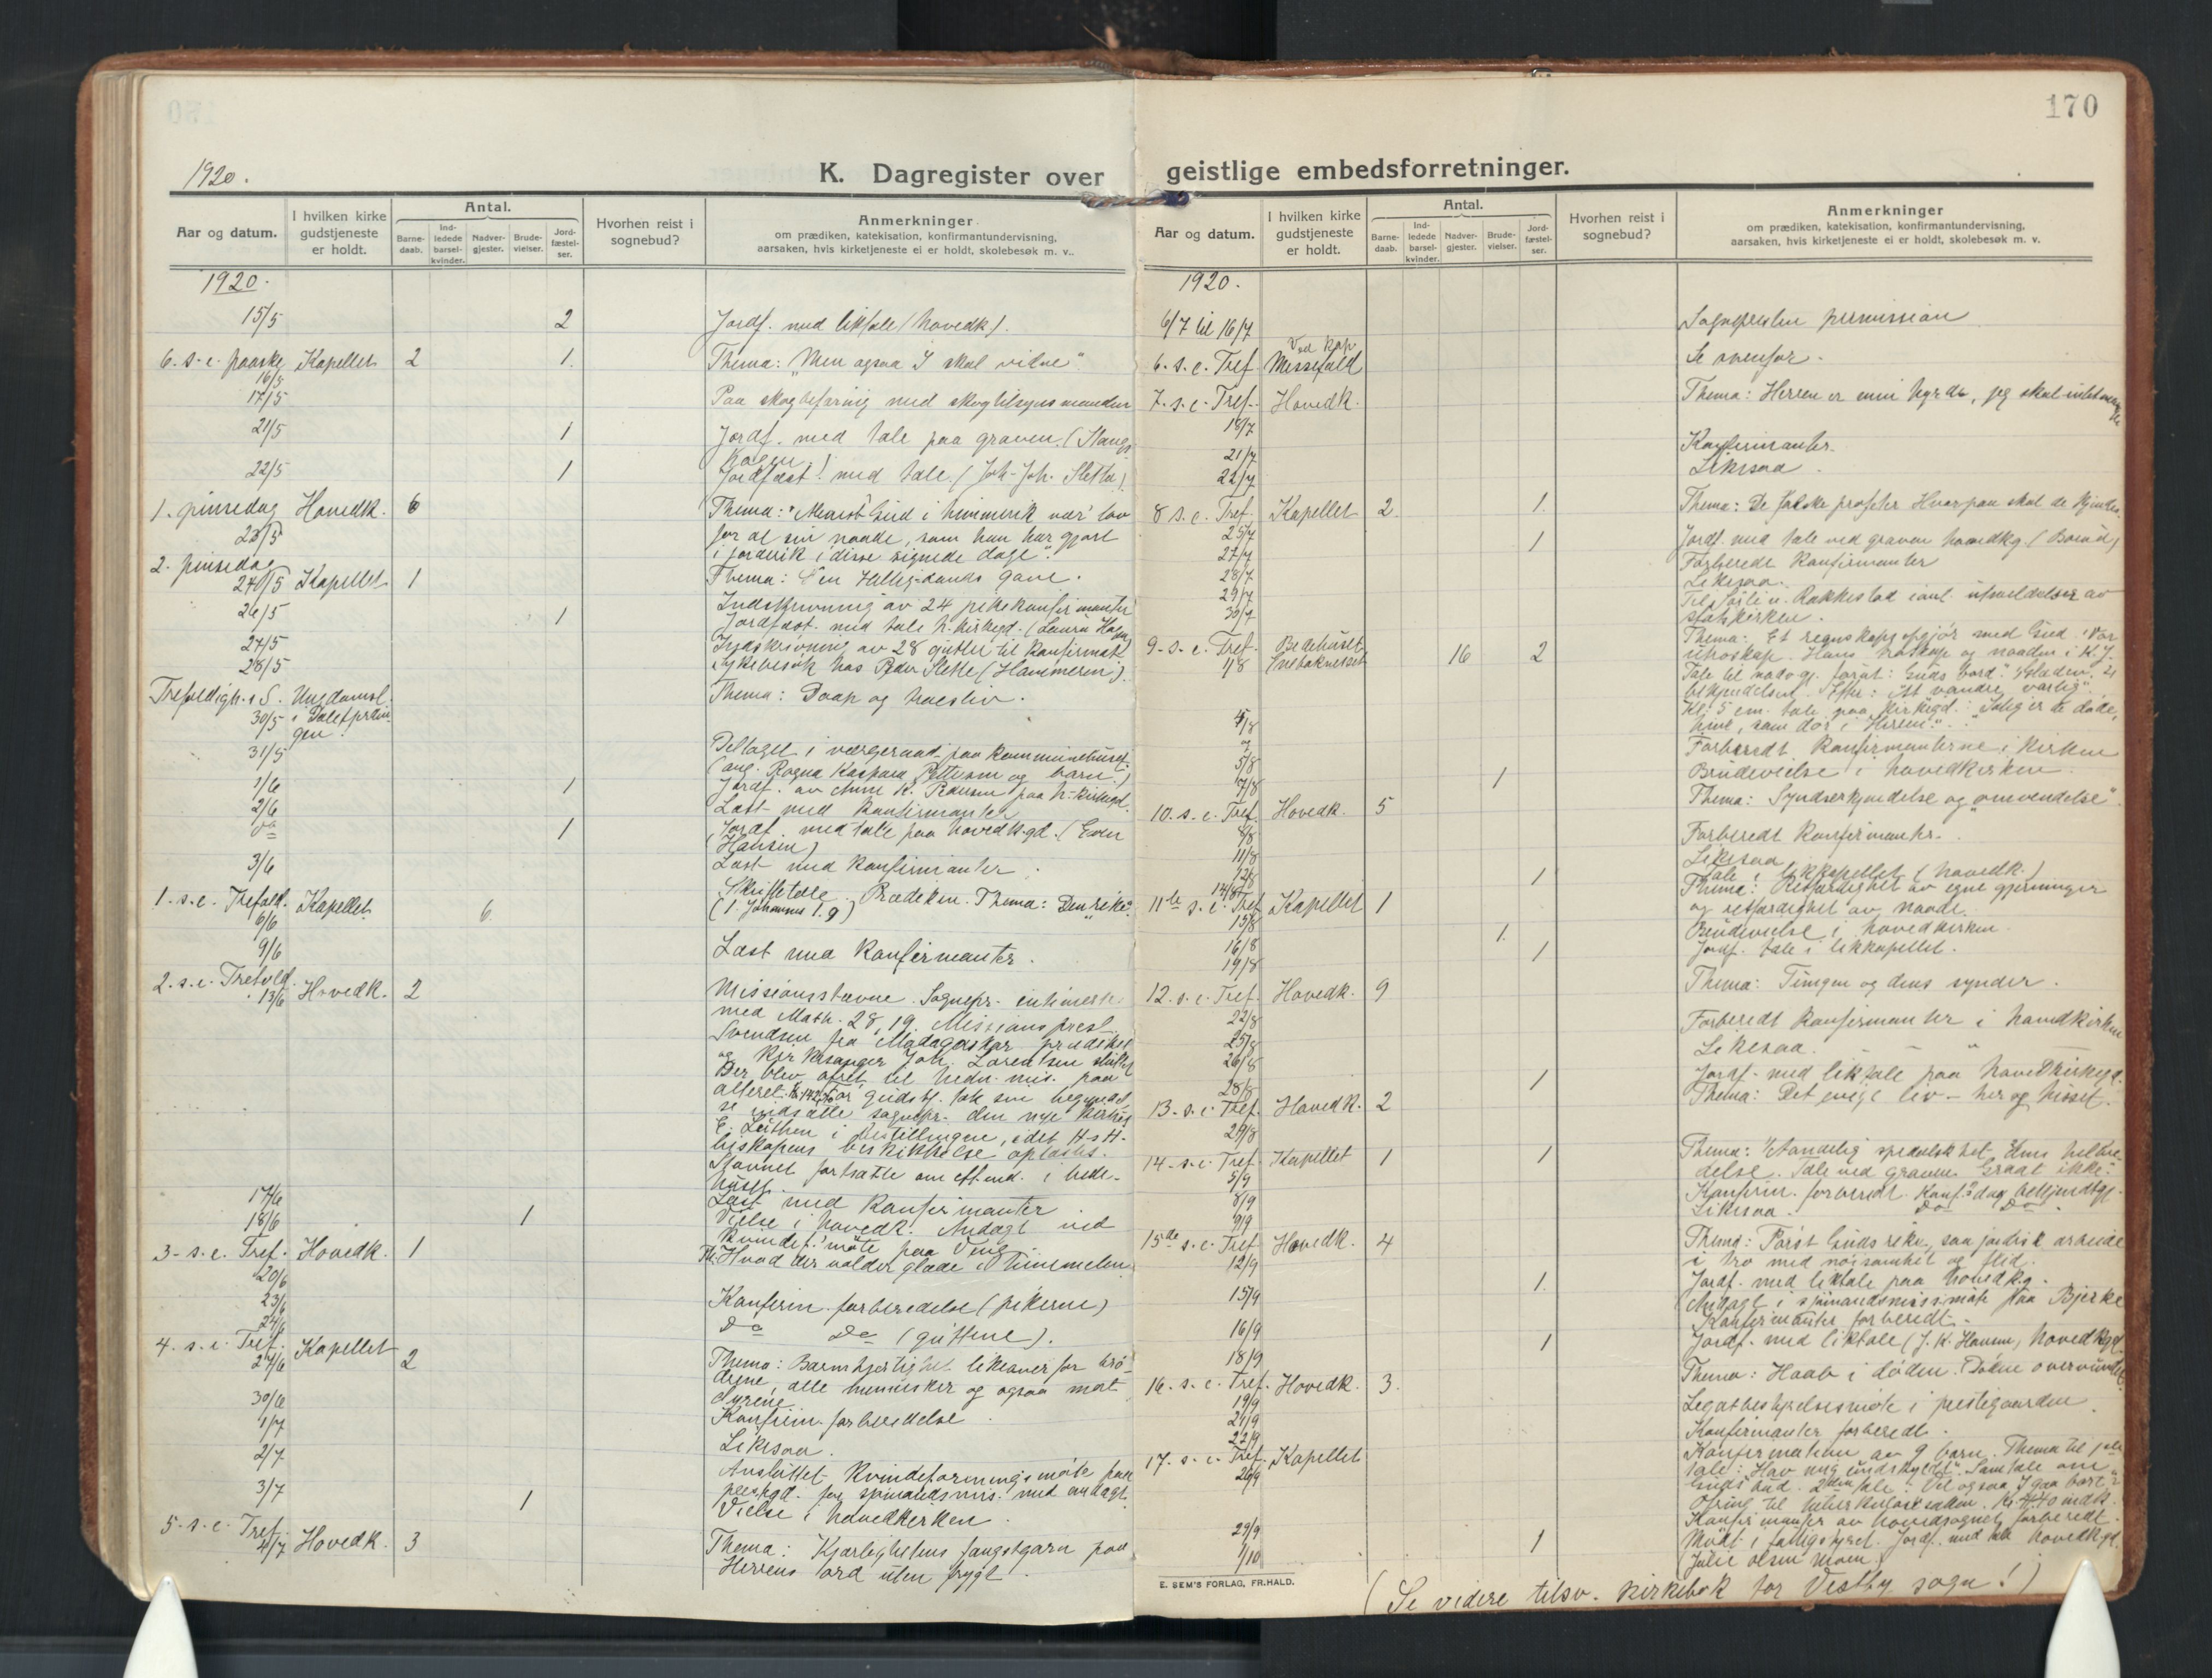 170
1920.
K. Dagregister over
Aar og datum.
I hvilken kirke gudstjeneste er holdt.
Antal.
Barne-daab.
Ind-ledede barsel-kvinder.
Nadver-gjester.
Brude-vielser.
Jord-fæstel-ser.
Hvorhen reist i sognebud?
Anmerkninger
om prædiken, katekisation, konfirmantundervisning,
aarsaken, hvis kirketjeneste ei er holdt, skolebesøk m. v..
1920.
15/5 2 Jordf. med liktale (hovedk).
6. s. e. paaske Kapellet 2 1. Thema: "Men ogsaa I skal vidne"
16/5
17/5 Paa skogbefaring med skogtilsynsmanden
21/5 1 Jordf. med tale paa graven. (Stangs
kogen.)
22/5 1 Jordfæst. med tale. (Joh. Joh. Slette)
1. pinsedag Hovedk. 6 Thema: "Menst Gud i himmerik vær' lov
23/5 for al sin naade, som han har gjort
i jorderik i disse signede dage".
2. pinsedag
24/5 Kapellet 1 Thema: Den Hellig-aands gave.
26/5 Indskrivning av 24 pikekonfirmanter
1 Jordfæst. med tale h. kirkegd. (Laura
27/5 Indskrivning av 28 gutter til konfirmat.
28/5 Sykebesøk hos Peder Slette (Hammeren).
Trefoldigh. s S. Ungdomsl. Thema: Daap og troesliv.
30/5 i
gen.
31/5 Deltaget i værgeraad paa kommunehuset
(ang. Ragna Kaspara Pettersen og barn.)
1/6 1 Jordf. av Anne K. paa h-kirkegd.
2/6 Læst med konfirmanter
do 1 Jordf. med tale paa hovedk.gd. (Even
Hansen)
3/6 Læst med konfirmanter.
1. s. e. Trefold. Kapellet 6. Skriftetale. Prædiken. Thema: Den rike
6/6 (1. Johannes 1.9)
9/6 Læst med konfirmanter.
2. s. e. Trefold.
13/6 Hovedk. 2 Missionsstævne. Sognepr. intimerte
med Math. 28, 19. Missionsprest
Svendsen fra Madagaskar prædiket
og kirkesanger Joh. Lorentsen sluttet
Der blev ofret til hedn. mis. paa
alteret. Før gudstj. tok sin begyndel
se indsatte sognepr. den nye
E. Løthen i bestillingen, idet H. H.
biskopens beskikkelse oplæstes.
Stævnet fortsatte om eft.md. i bede-
huset.
17/6 Læst med konfirmanter
18/6 1 Vielse i hovedk. Andagt ved
kvindef. møte paa Veng
3. s. e. Tref. Hovedk. 1 Th. Hvad der volder glæde i himmelen
20/6
23/6 Konfirm. forberedelse (pikerne)
24/6 do do (guttene).
4. s. e. Tref. Kapellet
27/6 2 Thema: Barmhjertighet likeover for brø
drene, alle mennesker og ogsaa mot
dyrene
30/6 Konfirm. forberedelse.
1/7 Likesaa.
2/7 Avsluttet kvindeforeningsmøte paa
prestgd. for sjømandsmis. med andagt.
3/7 1 Vielse i hovedkirken.
5. s. e. Tref.
4/7 Hovedk. 3 Thema: Kjærlighetens fangstgarn paa
Herrens ord uten frygt.
geistlige embedsforretninger.
Aar og datum.
I hvilken kirke gudstjeneste er holdt.
Antal.
Barne-daab.
Ind-ledede barsel-kvinder.
Nadver-gjester.
Brude-vielser.
Jord-fæstel-ser.
Hvorhen reist i sognebud?
Anmerkninger
om prædiken, katekisation, konfirmantundervisning,
aarsaken, hvis kirketjeneste ei er holdt, skolebesøk m. v.
1920.
6/7 til 16/7 Sognepresten permission
Ved kap
6. s. e. Tref. Messefald Se ovenfor.
7. s. e. Tref. Hovedk. Thema: Herren er min hyrde, jeg skal intet
18/7
21/7 Konfirmanter.
22/7 Likesaa.
8 s. e. Tref. Kapellet 2. 1. Thema: De falske profeter. Hvorpaa skal de kjendes.
25/7
27/7 1 Jordf. med tale ved graven hovedkg.
28/7 Forberede konfirmanter
29/7 Likesaa.
30/7 Til Rakkestad utmeldelser av
statskirken.
9. s. e. Tref. Bedehuset 16 2 Thema: Et regnskapsopgjør med Gud. Vor
1/8 Hans troskap og naaden i K. J.
Tale til
Kl. 5 em. tale paa kirkegd.: Salig er de døde,
som dør i Herren".
4/8 Forberedt konfirmanterne i kirken
5/8
7/8 1 Brudevielse i hovedkirken.
10. s. e. Tref. Hovedk. 5 Thema: Syndserkjendelse og "omvendelse".
8/8
11/8 Forberedt konfirmanter.
12/8 Likesaa
14/8 1 Tale i likkapellet (hovedk.)
11te s. e. Tref Kapellet 1 Thema: Retfærdighet av egne gjerninger
15/8 og retfærdighet av naade.
16/8 1. Brudevielse i hovedkirken.
19/8 1 Jordf. tale i likkapellet.
12. s. e. Tref. Hovedk. 9 Thema: Tungen og dens synder.
22/8
25/8 Forberedt konfirmanter i hovedkirken
26/8 Likesaa. "
28/8 1 Jordf. med liktale paa hovedkirkegd.
13. s. e. Tref. Hovedk. 2 Thema: Det evige liv - her og hisset.
29/8
14. s. e. Tref. Kapellet 1 1 Thema: Aandelig spedalskhet. Dens helbre
5/9 delse. Tale ved graven. Graat ikke.
8/9 Konfirm. forberedt.
9/9 Likesaa. Do Do.
15de s. e. Tref Hovedk. 4 Thema: Først Guds rike, saa jordisk arbeide
12/9 i tro med nøisomhet og flid.
15/9 1. Jordf. med liktale paa hovedkg.
Andagt i sjømandsmiss.møte paa Bjerke
16/9 Konfirmanter forberedt.
18/9 1 Jordf. med liktale (J. K. Hansen) hovedkgd.
16. s. e. Tref. Hovedk. 3. Thema: Haab i døden.
19/9
21/9 Legatbestyrelsesmøte i prestegaarden.
22/9 Konfirmanter forberedt.
17. s. e. Tref. Kapellet Konfirmation av 9 barn. Thema til 1ste
26/9 tale: Hav mig undskyldt". Samtale om
Guds bud. 2den tale: Vil ogsaa I gaa bort?"
Ofring til tuberkulosesaken.
29/9 Konfirmanter av hovedsognet forberedt.
1/10 1 Mødt i fattigstyret. Jordf. med tale hovedkgd.
(Julie Olsen Moen.)
E. SEM'S FORLAG, FR.HALD.
(Se videre tilsv. kirkebok for Vestby sogn!)